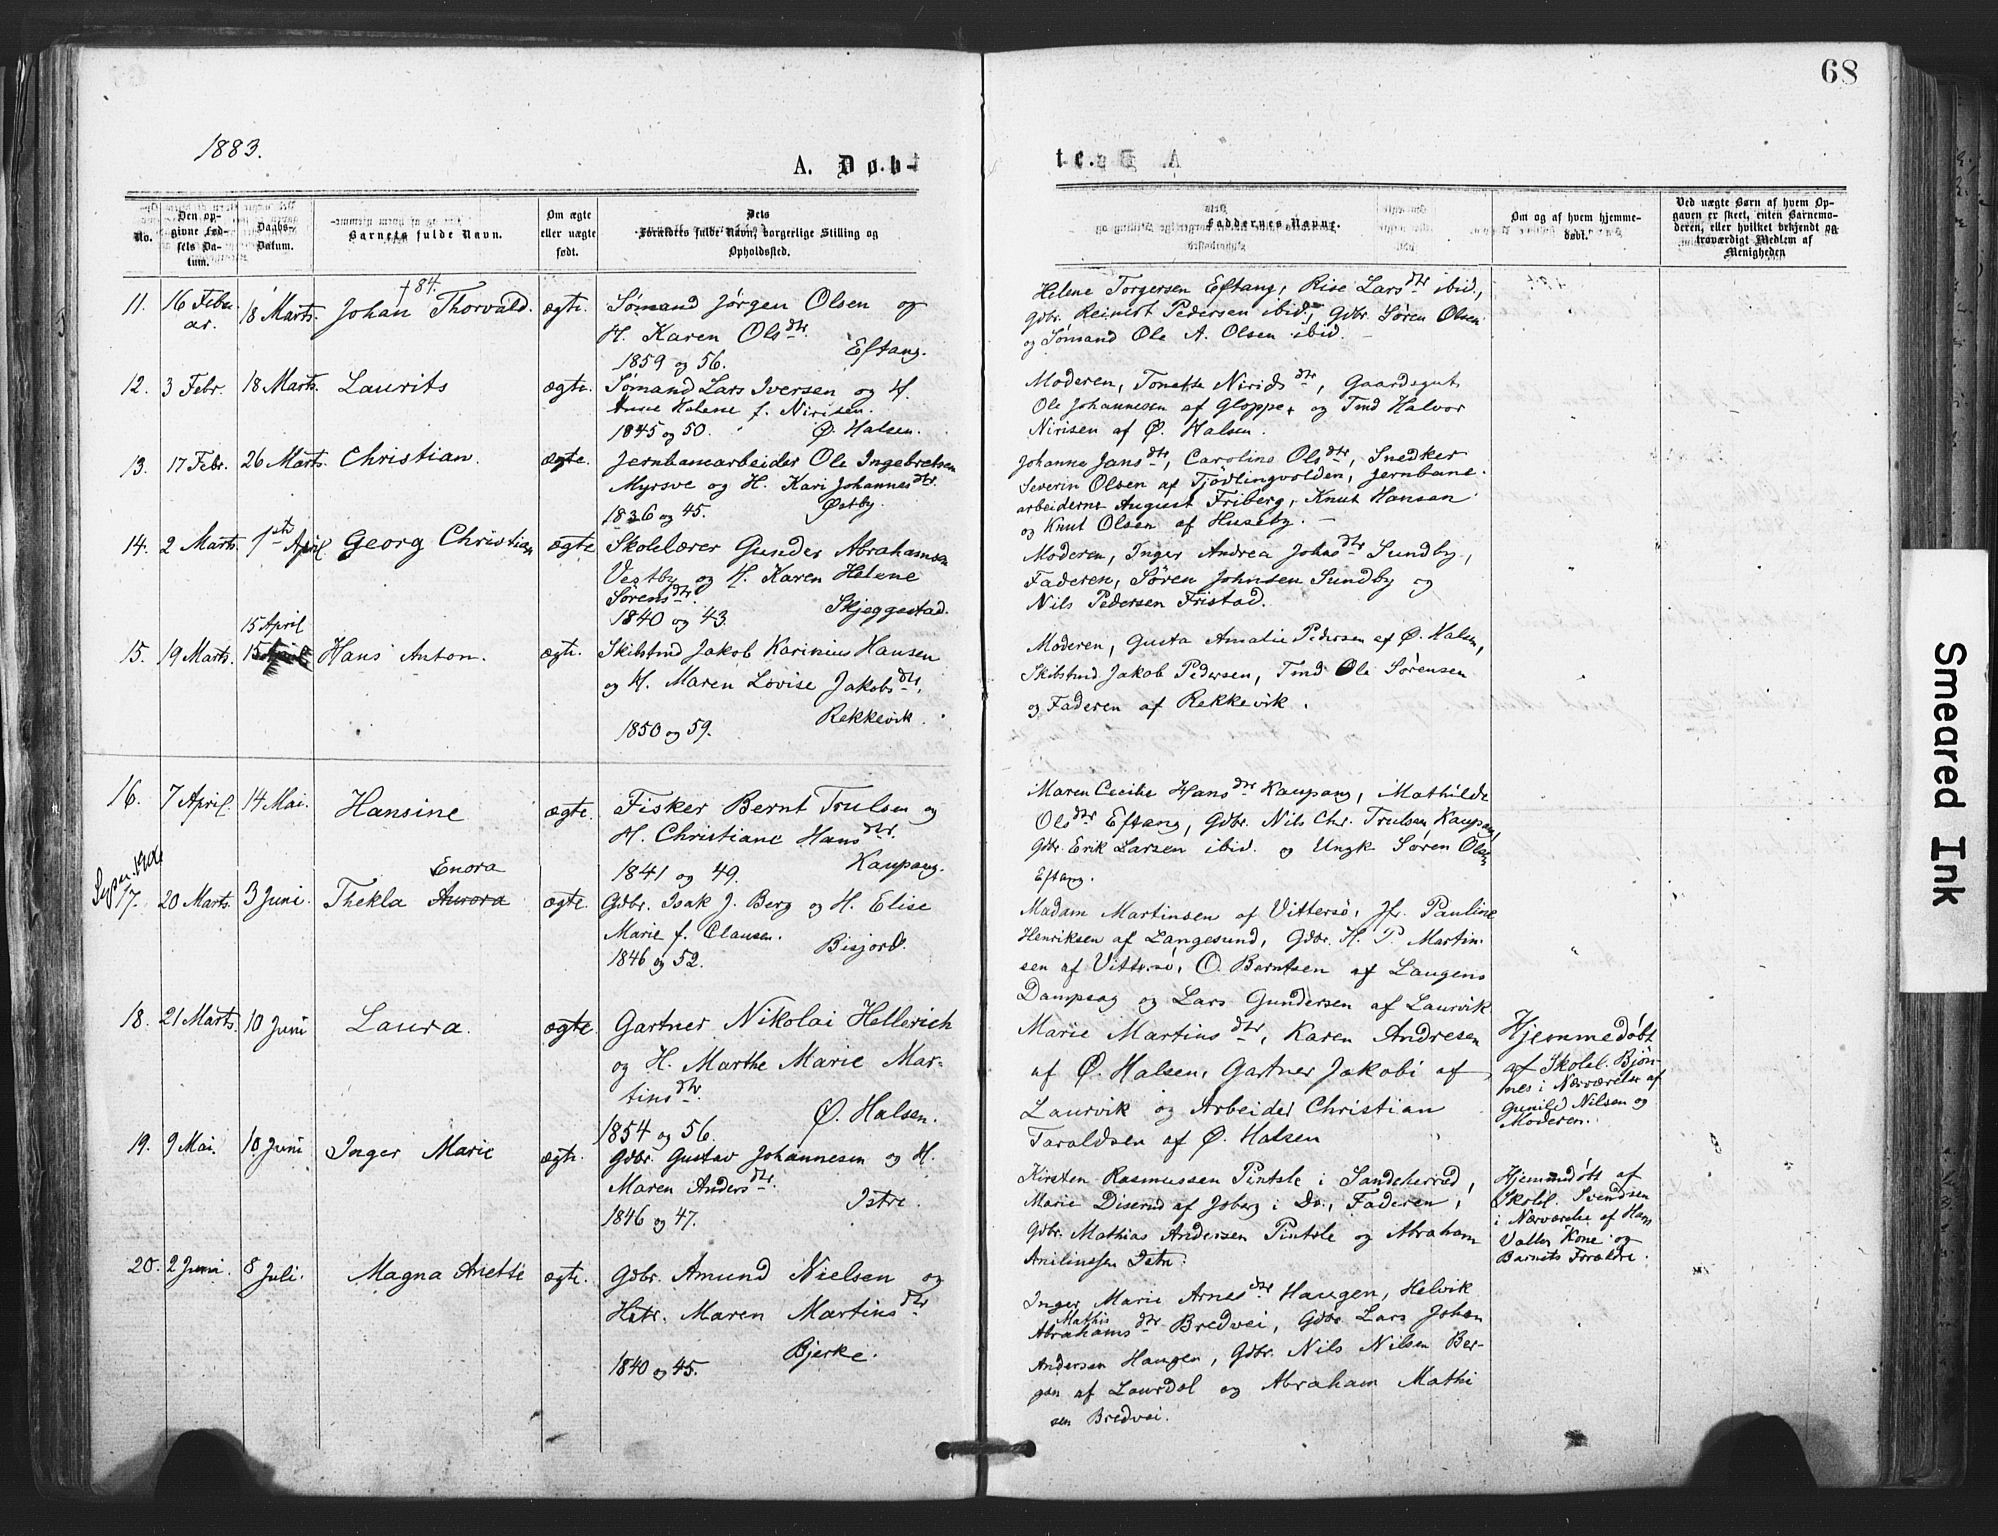 68
1883.
A. Døb-
t.
No.
Den op-
givne Fød-
sels Da-
tum.
Daabs-
Datum.
Barnets fulde Navn.
Om ægte
eller uægte
født.
Dets
Forældres fulde Navn, borgerlige Stilling og
Opholdssted.
Faddernes Navne.
Om og af hvem hjemme-
døbt.
Ved uægte Børn af hvem Op-
gaven er skeet, enten Barnemo-
deren, eller hvilket bekjendt og
troværdigt Medlem af
Menigheden
11.
16 Febru
ar.
18 Marts.
†84.
Johan Thorvald.
ægte.
Sømand Jørgen Olsen og
H. Karen Olsdtr.
Eftang.
1859 og 56.
Helene Torgersen Eftang, Rise Larsdtr ibid.,
Gdbr. Reinert Pedersen ibid., Gdbr. Søren Olsen
og Sømand Ole A. Olsen ibid.
12.
3 Febr.
18 Marts.
Laurits
ægte.
Sømand Lars Iversen og H.
Anne Helene f. Nirisen.
1845 og 50.
Ø. Halsen.
Moderen, Tonette Niridsdtr, Gaardsgut
Ole Johannesen af Gloppe, og Tmd Halvor
Nirisen af Ø. Halsen.
13.
17 Febr.
26 Marts.
Christian.
ægte.
Jernbanearbeider Ole Ingebretsen
Myrsve og H. Kari Johannesdtr.
1836 og 45.
Østby.
Johanne Jansdtr, Caroline Olsdtr, Snedker
Severin Olsen af Tjødlingvolden, Jernbane-
arbeiderne August Friberg, Knut Hansen
og Knut Olsen af Huseby.
14.
2 Marts.
1ste April
Georg Christian
ægte
Skolelærer Gunder Abrahamsen
Vestby og H. Karen Helene
Sørensdtr.
1840 og 43.
Skjeggestad.
Moderen, Inger Andrea Johnsdtr Sundby,
Faderen, Søren Johnsen Sundby og
Nils Pedersen Fristad.
15.
19 Marts.
15 April
15 April
Hans Anton.
ægte.
Skibstmd Jakob Karinius Hansen
og H. Maren Lovise Jakobsdtr,
Rekkevik.
1850 og 59.
Moderen, Gusta Amalie Pedersen af Ø. Halsen,
Skibstmd Jakob Pedersen, Tmd Ole Sørensen
og Faderen af Rekkevik.
16.
7 April.
14 Mai.
Hansine
ægte.
Fisker Bernt Trulsen og
H. Christiane Hansdtr.
1841 og 49.
Kaupang.
Maren Cecilie Hansdtr Kaupang, Mathilde
Olsdtr Eftang, Gdbr. Nils Chr. Trulsen Kaupang,
Gdbr. Erik Larsen ibid. og Ungk. Søren Olsen
Eftang.
17.
20 Marts.
3 Juni.
Enora
Thekla Aurora
ægte.
Gdbr. Isak J. Berg og H. Elise
Marie f. Clausen.
1846 og 52.
Bisjord.
Madam Martinsen af Vittersø, Jfr. Pauline
Henriksen af Langesund, Gdbr. H. P. Martin-
sen af Vittersø, O. Berntsen af Laugens
Dampsag og Lars Gundersen af Laurvik
18.
21 Marts.
10 Juni
Laura.
ægte.
Gartner Nikolai Hellerich
og H. Marthe Marie Mar-
tinsdtr.
1854 og 56.
Ø. Halsen.
Marie Martinsdtr, Karen Andresen
af Ø. Halsen, Gartner Jakobi af
Laurvik og Arbeider Christian
Taraldsen af Ø. Halsen
Hjemmedøbt
af Skolel. Bjøn-
nes i Nærværelse af
Gunild Nilsen og
Moderen.
19.
9 Mai.
10 Juni
Inger Marie
ægte.
Gdbr. Gustav Johannesen og H.
Maren Andersdtr.
1846 og 47.
Istre.
Kirsten Rasmussen Pintsle i Sandeherred,
Marie Diserud af Joberg i Do., Faderen,
Gdbr. Mathias Andersen Pintsle og Abraham
Istre.
Hjemmedøbt af
Skolel. Svendsen
i Nærværelse af Hans
Valler Kone og
Barnets Forældre.
20.
2 Juni.
8 Juli.
Magna Anette
ægte.
Gdbr. Amund Nielsen og
Hstr. Maren Martinsdtr
Bjerke.
1840 og 45.
Inger Marie Arnesdtr Haugen, Helvik
Mathis
Abrahamsdtr Bredvei, Gdbr. Lars Johan
Andersen Haugen, Gdbr. Nils Nilsen Ber-
gan af Laurdal og Abraham Mathi
sen Bredvei.
Smeared Ink